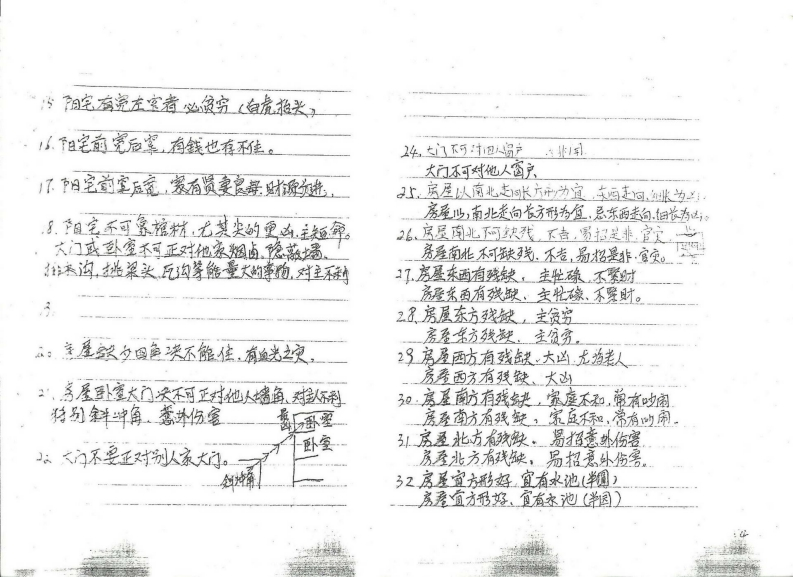 15 阳宅前宽左宽者必贫穷(白虎抬头)
16. 阳宅前宽后窄,有钱也存不住。
17. 阳宅前窄后宽,家有贤妻良母财源广进。
18. 阳宅不可靠棺材,尤其尖的更凶,主短命。
大门或卧室不可正对他家烟卤,隐蔽墙。
排水沟,挑梁头,瓦沟等能量大的事物,对主不利
四角决不能住,有血光之灾。
房屋卧室大门决不可正对他人墙角,对主人不利
特别斜冲角、意外伤害
卧室
卧室
22 大门不要正对别人家大门。
斜冲角
24. 大门不可对他人窗户
大门不可对他人窗户
25. 房屋以南北走向长方形为宜,东西走向,细长为凶。
房屋以南北走向长方形为宜,忌东西走向,细长为凶。
26. 房屋南北不可缺残,不吉,易招是非,官灾
房屋南北不可缺残,不吉,易招是非,官灾。
27. 房屋东西有残缺,主忙碌、不聚财
房屋东西有残缺,主忙碌、不聚财。
28. 房屋东方残缺,主贫穷
房屋东方残缺、主贫穷。
29 房屋西方有残缺、大凶 尤治老人
房屋西方有残缺、大凶
30. 房屋南方有残缺,家庭不和,常有吵闹
房屋南方有残缺,家庭不和,常有吵闹。
31. 房屋北方有残缺、易招意外伤害
房屋北方有残缺,易招意外伤害。
32 房屋宜方形好、宜有水池(半圆)
房屋宜方形好、宜有水池(半园)